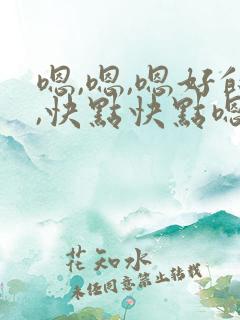 嗯,嗯,嗯好
,快點快點嗯
花知水
未经同意禁止转载